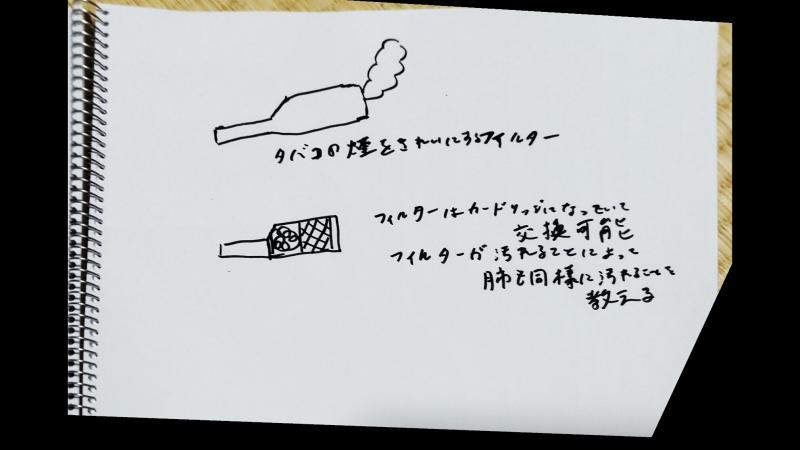 タバコの煙をきれいにするフィルター
フィルターはカードリッジになっていて
交換可能
フィルターが汚れることによって
肺も同様に汚れることを
教える